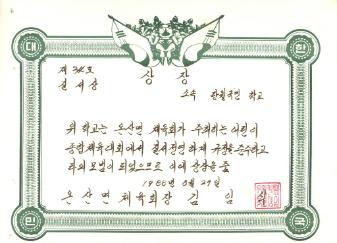 대 한
제 34호
상 장
질서상
소속 학교
위 학교는 온산면 체육회가 주최하는 어린이
종합체육대회에서 질서정연하게 규정을 준수하고
타의 모범이 되었으므로 이에 상장을 줌
1966년 6월 29일
온산면체육회장 김
민 국